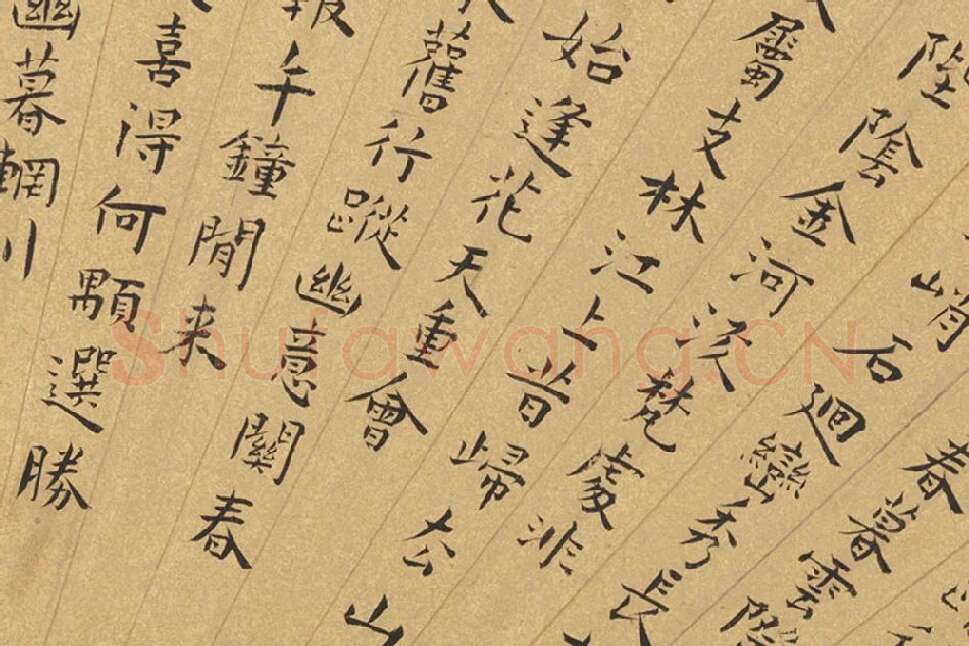 春暮雲
峭石廻巒秀長
陞陰金河梵處非
屬支林江上昔歸公山
始逢花天重會
舊行蹤幽意關春
報千鐘閒来
喜得何顒選勝
幽暮輞川
Shufawang.CN